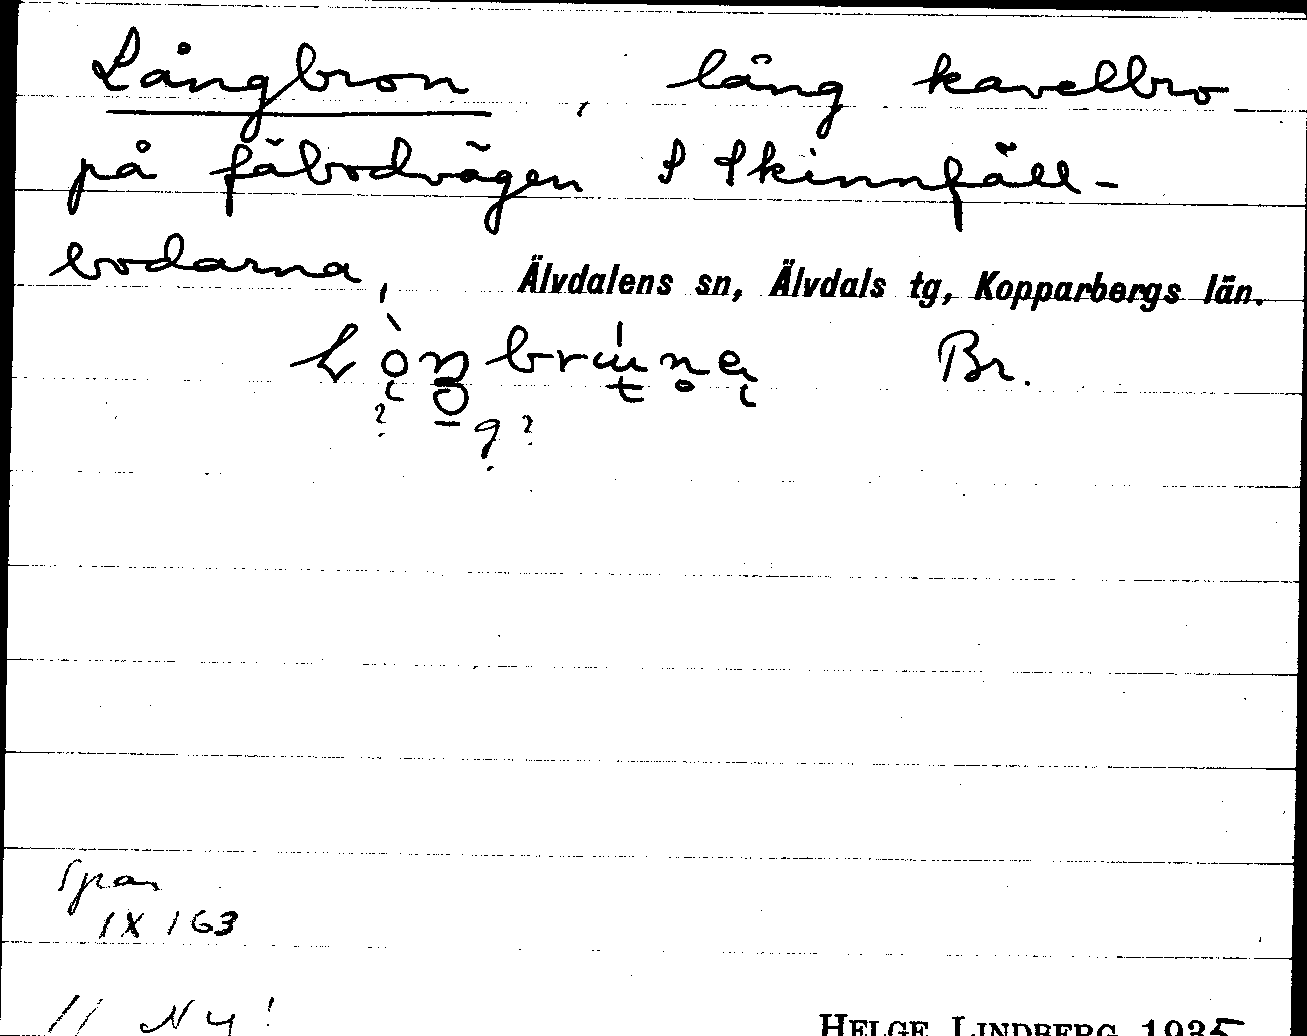 Långbron, lång kavelbro
på fäbodvägen S Skinnfäll-
bodarna, Älvdalens sn, Älvdals tg, Kopparbergs län.
Br.
IX 163
// Ny!
HELGE LINDBERG 1935